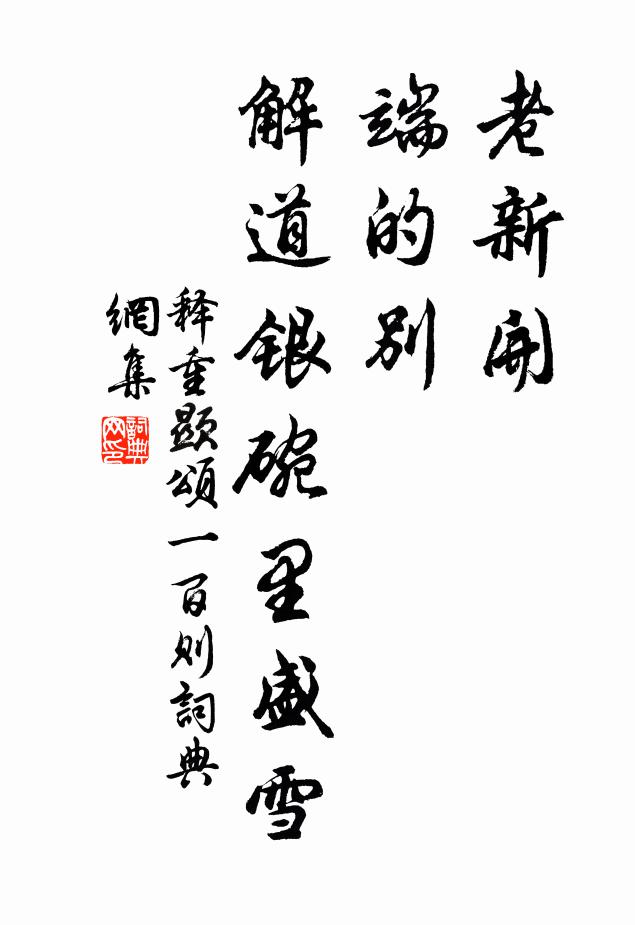 老新開
端的別
解道銀碗里盛雪
释重顯頌一百则詞典
網集
詞典網印